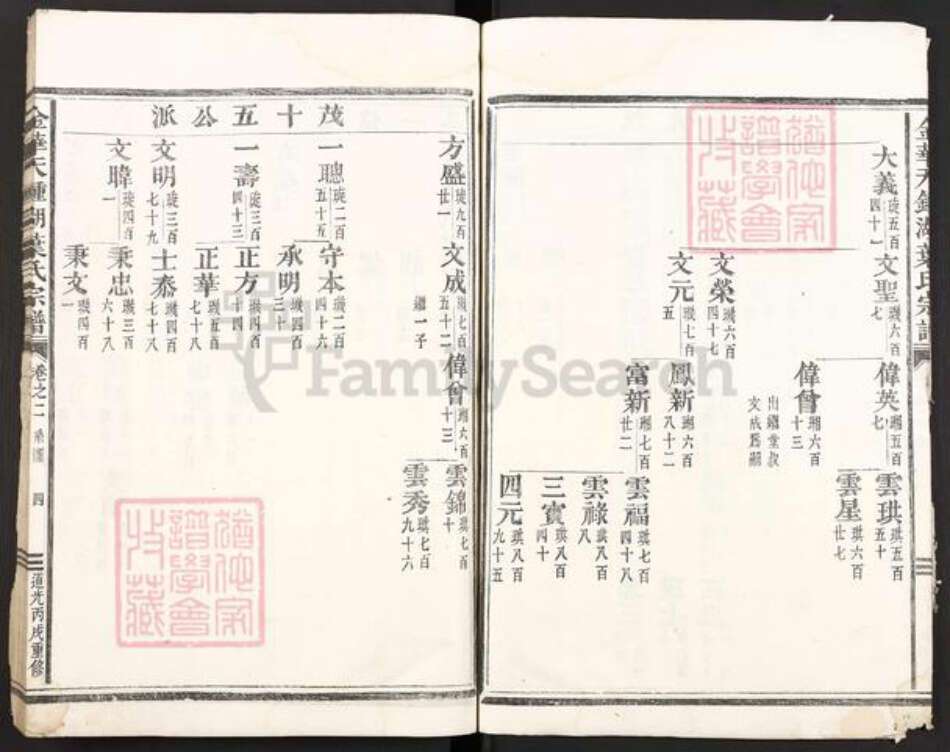 大義 璇五百四十一
文聖 璣六百七
偉英 瑚五百七
雲珙 琪五百五十
雲星 琪六百廿七
偉會 瑚六百十三
出繼堂叔
文成爲嗣
文榮 璣六百四十七
文元 璣七百五
鳳新 瑚六百八十二
富新 瑚七百廿二
雲福 琪七百四十八
雲祿 琪八百八
三寶 琪八百四十
四元 琪八百九十五
方盛 璇九百廿一
文成 璣七百五十二
繼一子
偉會 瑚六百十三
雲錦 琪七百十
雲秀 琪七百九十六
茂十五公派
一聰 璇二百五十五
守本 璣二百四十六
承明 璣四百三十
一壽 璇三百四十三
正方 璣四百
正華 璣五百七十八
文明 璇三百七十九
士泰 璣四百七十八
文暐 璇四百一
秉忠 璣三百六十八
秉文 璣四百一
葉氏宗譜
卷之二
四
道光丙戌重修
FamilySearch